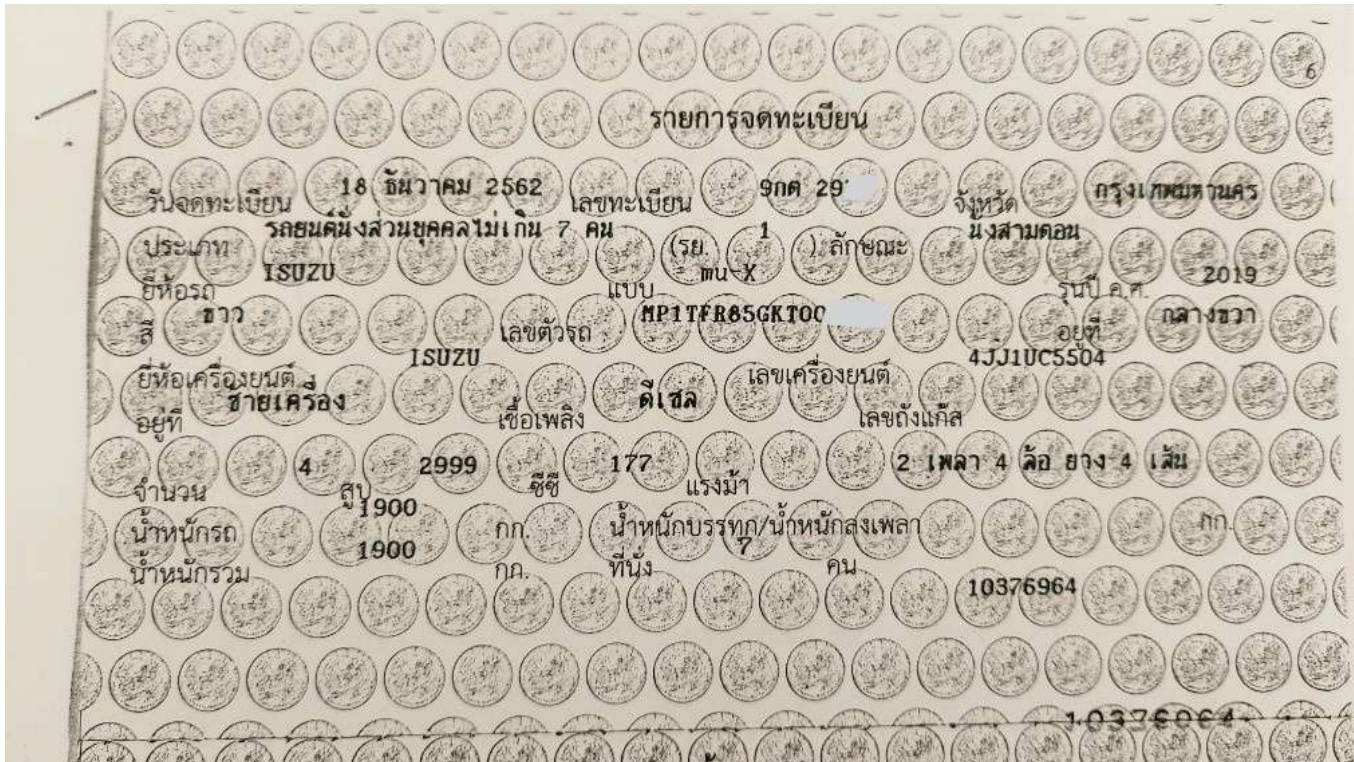 6
รายการจดทะเบียน
วันจดทะเบียน 18 ธันวาคม 2562 เลขทะเบียน 9กต 29 จังหวัด กรุงเทพมหานคร
ประเภท รถยนต์นั่งส่วนบุคคลไม่เกิน 7 คน (รย. 1 ) ลักษณะ นั่งสามตอน
ยี่ห้อรถ ISUZU แบบ mu-X รุ่นปี ค.ศ. 2019
สี ขาว เลขตัวรถ MP1TFR85GKT00 อยู่ที่ กลางขวา
ยี่ห้อเครื่องยนต์ ISUZU เลขเครื่องยนต์ 4JJ1UC5504
อยู่ที่ ซ้ายเครื่อง เชื้อเพลิง ดีเซล เลขถังแก๊ส
จำนวน 4 สูบ 2999 ซีซี 177 แรงม้า 2 เพลา 4 ล้อ ยาง 4 เส้น
น้ำหนักรถ 1900 กก. น้ำหนักบรรทุก/น้ำหนักลงเพลา กก.
น้ำหนักรวม 1900 กก. ที่นั่ง 7 คน
10376964